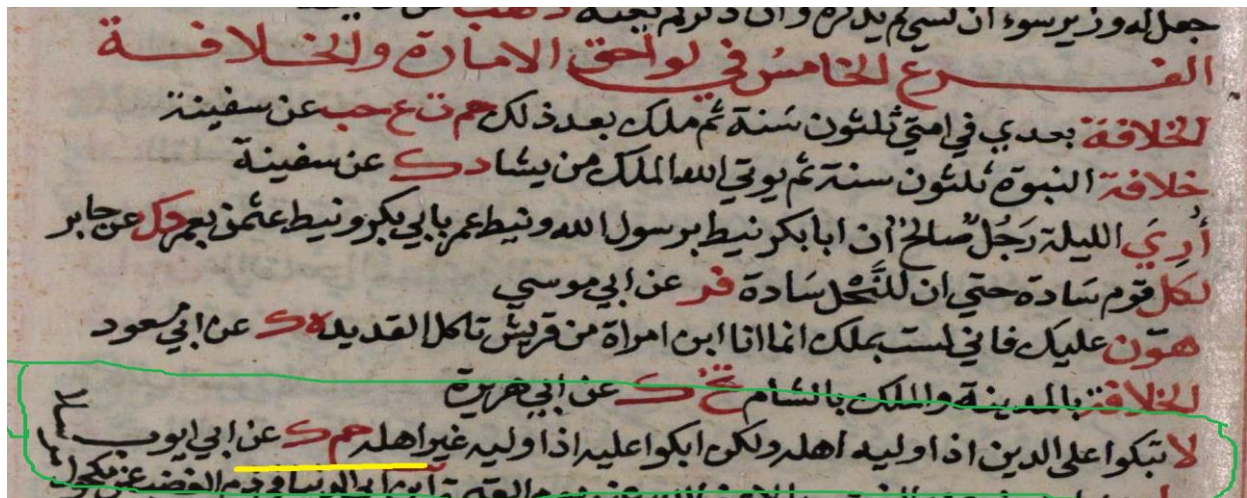 جعل له وزير سوء ان نسي لم يذكره وان ذكر لم يعنه
الفرع الخامس في لواحق الامارة والخلافة
الخلافة بعدي في امتي ثلثون سَنة ثم ملك بعد ذلك حم ت ع حب عن سفينة
خلافة النبوة ثلثون سنة ثم يوتي الله الملك من يشا د ك عن سفينة
أُرِيَ الليلة رَجُل صَالح ان ابا بكر نيط برسول الله ونيط عمر بابي بكر ونيط عثمن بعمر د ك عن جابر
لكل قوم سَادة حتي ان للنَّحل سَادة فر عن ابي موسي
هوّن عليك فاني لست بملك انما انا ابن امراة من قريش تاكل القديد ه ك عن ابي مسعود
الخلافة بالمدينة والملك بالشام تخ ك عن ابي هريرة
لا تبكوا على الدين اذا وليه اهله ولكن ابكوا عليه اذا وليه غير اهله حم ك عن ابي ايوب